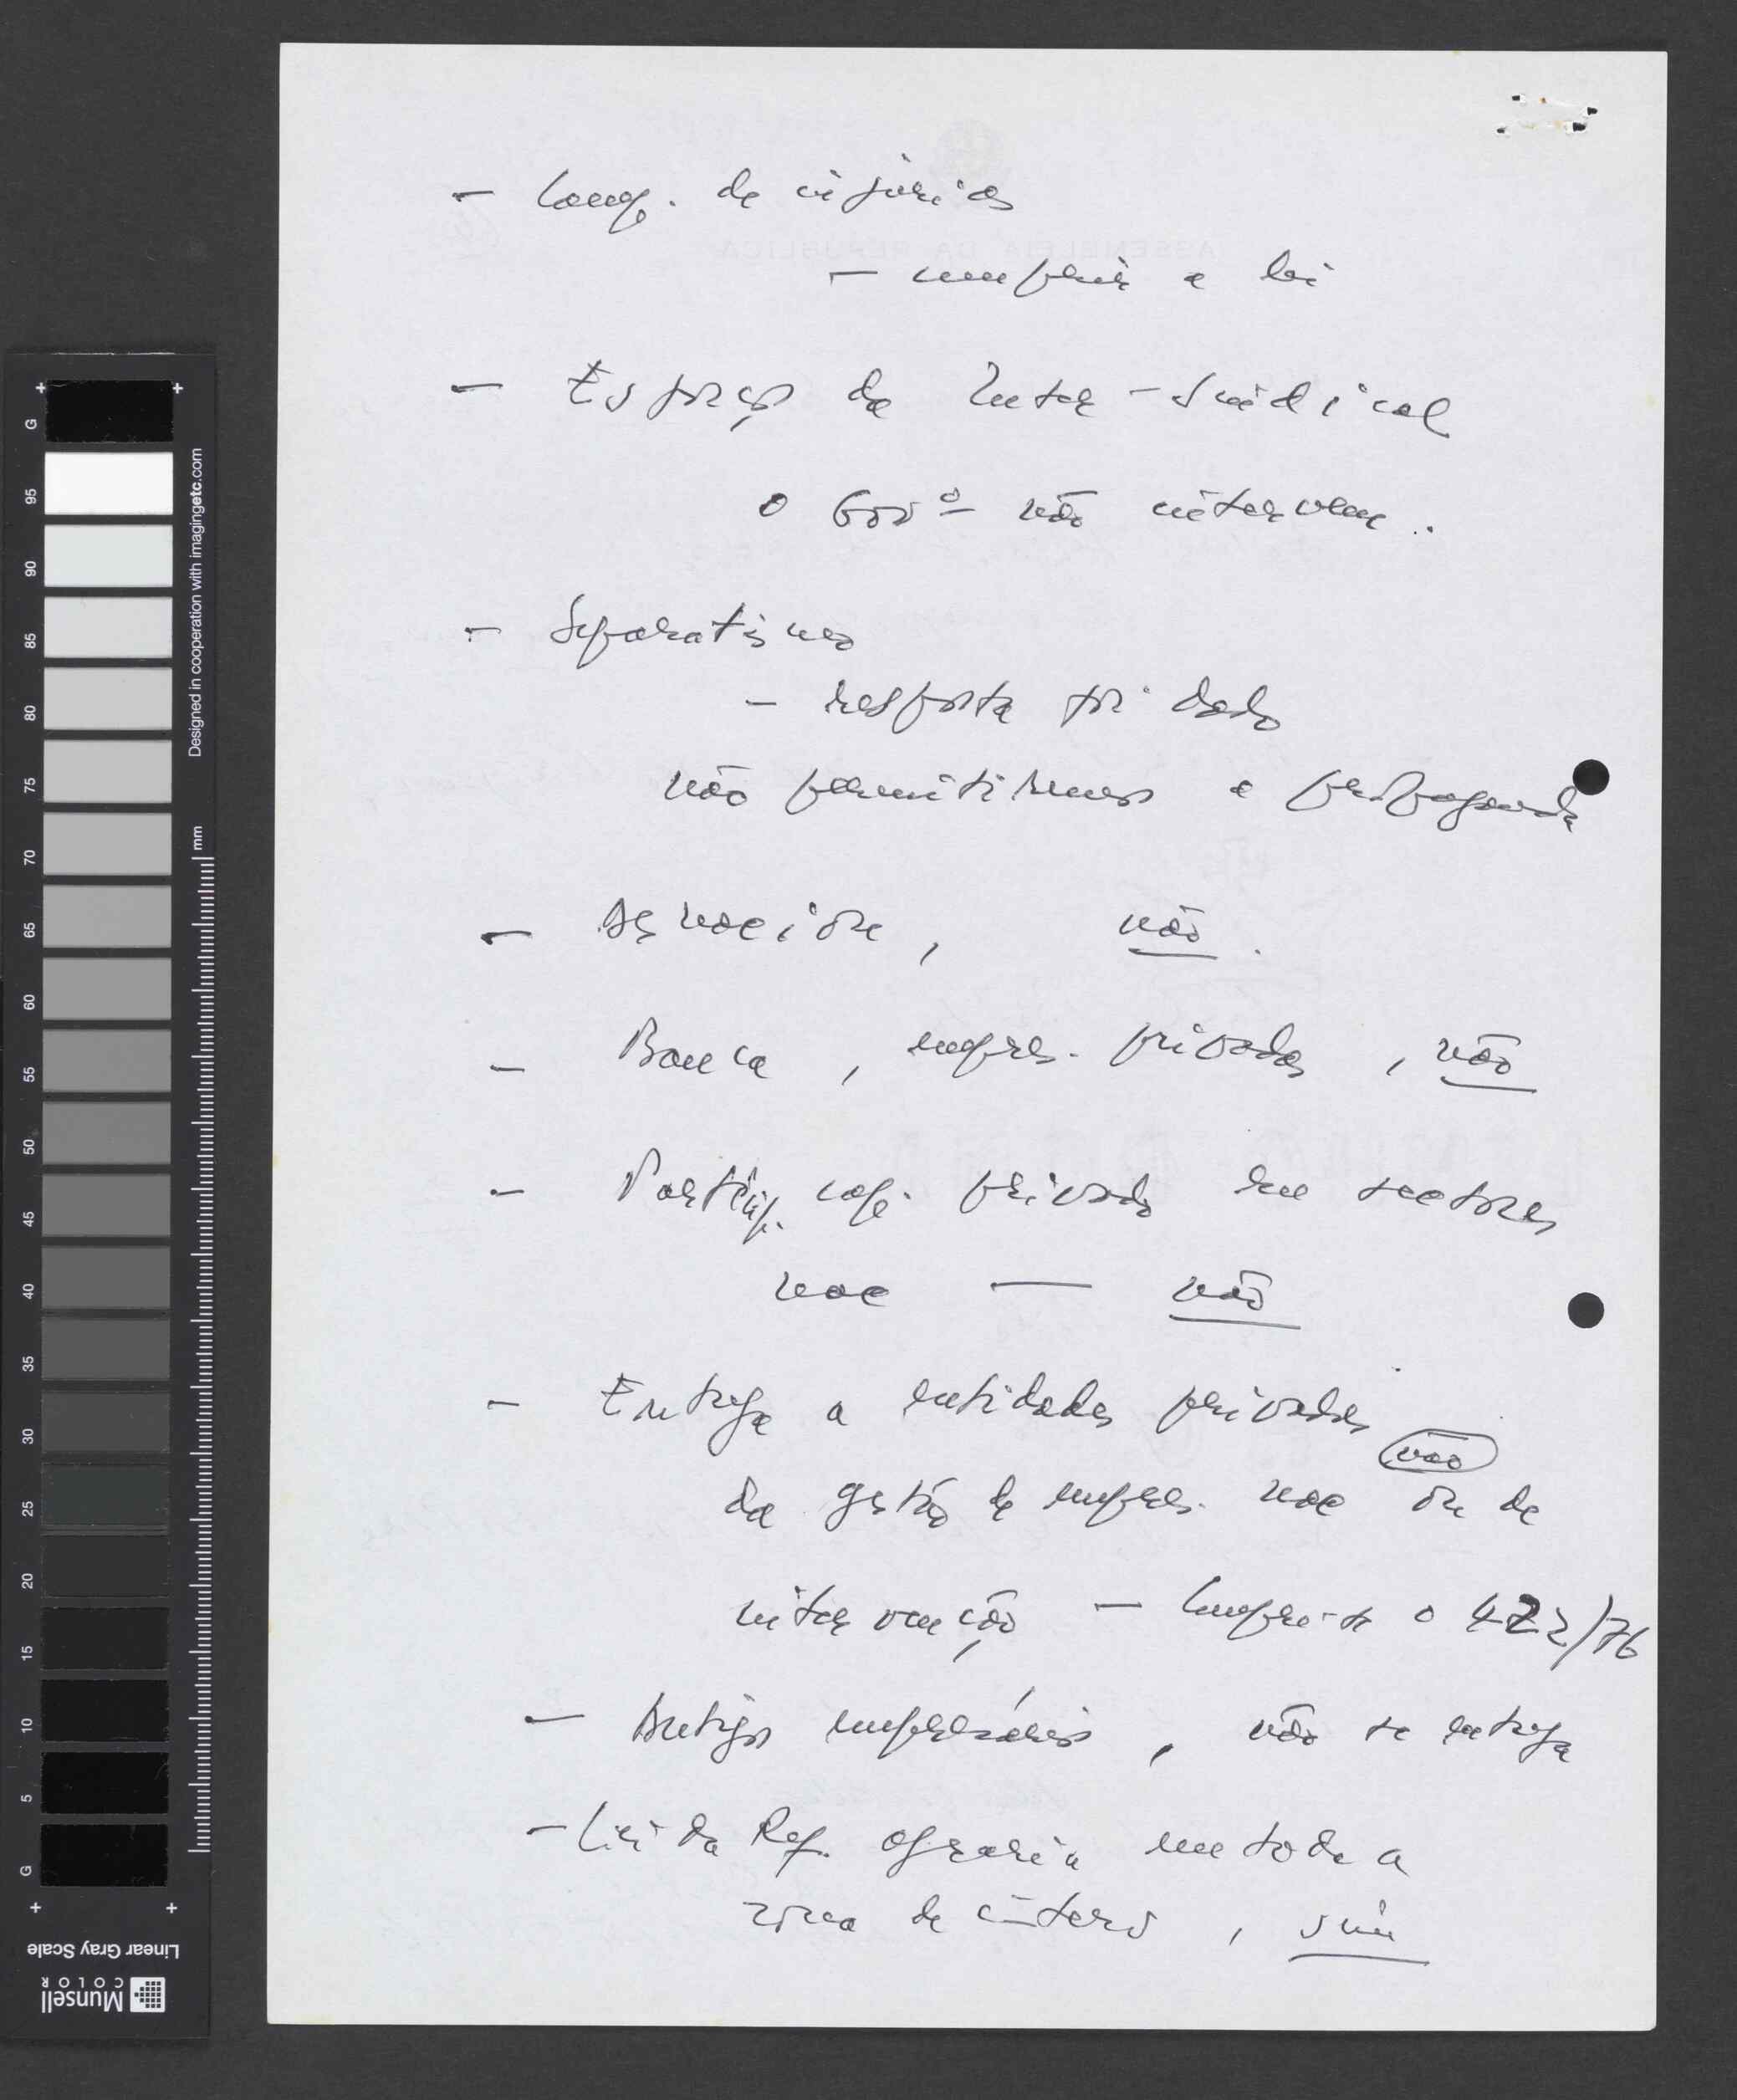 – Camp. de injúrias
– cumprir a lei
– Esforço da Inter-Sindical
o Govº não intervem.
– Separatismo
– resposta foi dada
não permitiremos a propaganda
– Desnac , não.
– Banca, empres. privadas, não
– Particip. cap. privado em sectores
nac — não
– Entrega a entidades privadas
não
da gestão de empres. nac ou de
intervenção – Cumpre-se o 422/76
– Antigos empresários, não se entrega
– Lei da Ref. agrária em toda a
zona de interv, sim
ASSEMBLEIA DA REPÚBLICA
G 95 90 85 80 75 70 65 60 55 50 45 40 35 30 25 20 15 10 5 G
Designed in cooperation with imagingetc.com
mm
Linear Gray Scale
Munsell
COLOR